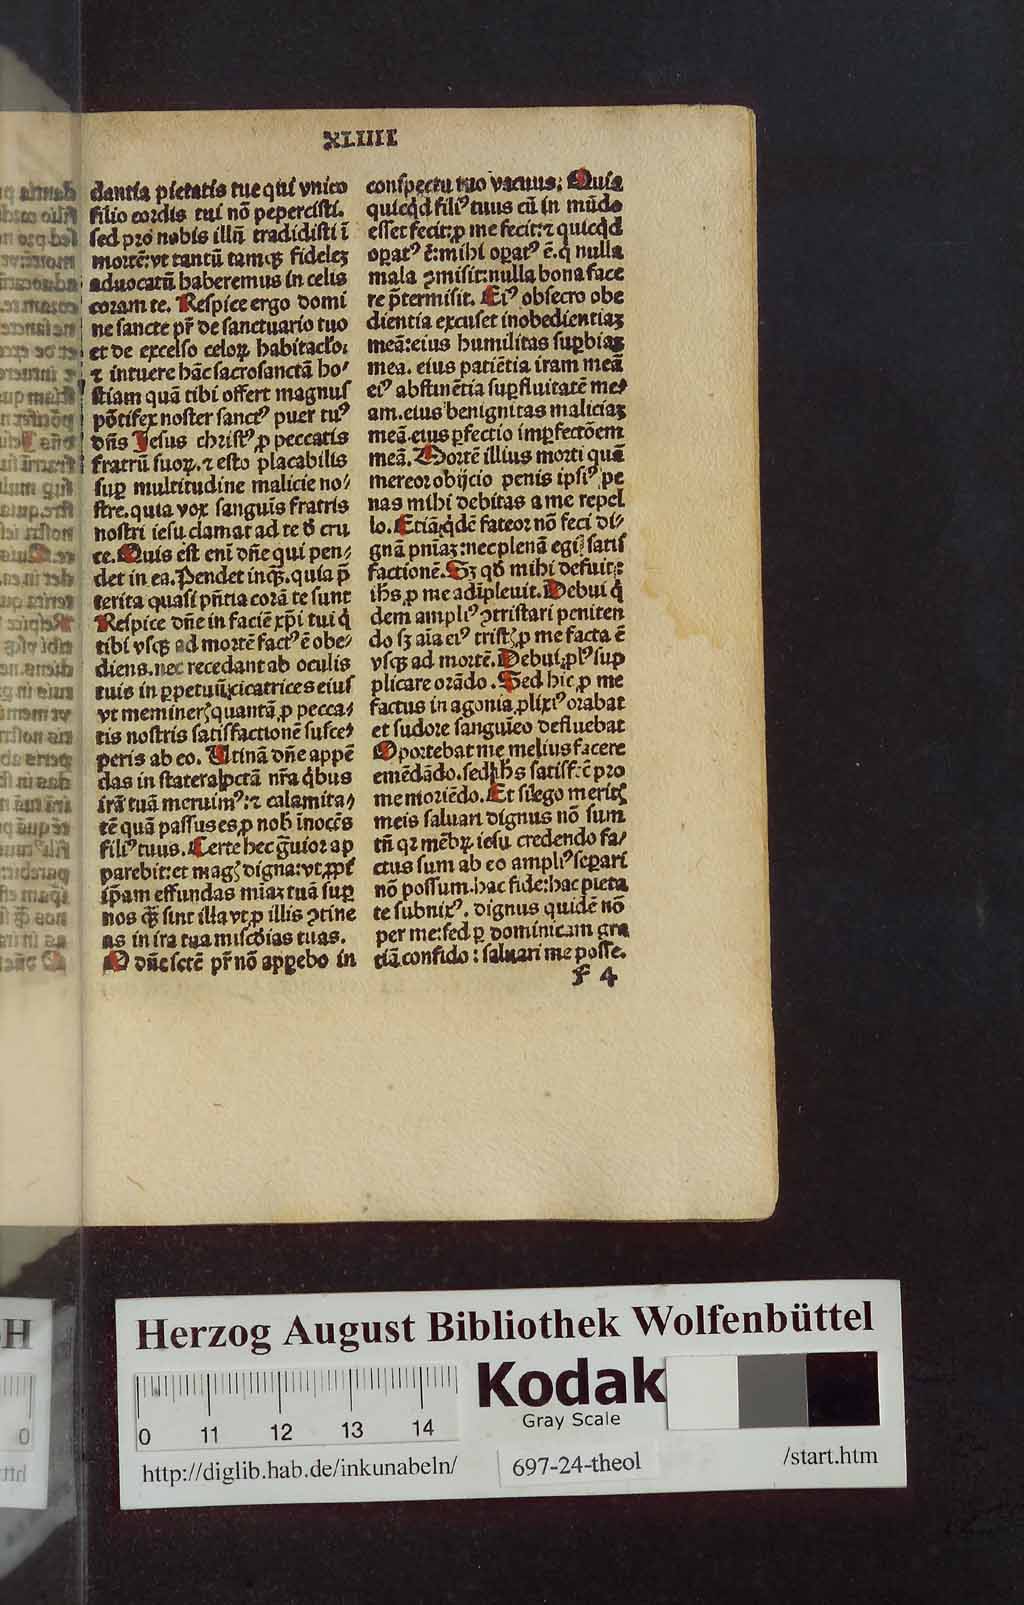 XLIIII
dantia pietatis tue qui vnico
filio cordis tui nō pepercisti.
sed pro nobis illū tradidisti ī
mortē: vt tantū tamqꝫ fidelez
aduocatū haberemus in celis
coram te. Respice ergo domi
ne sancte pr̄ de sanctuario tuo
et de excelso celoꝝ habitaclo:
⁊ intuere hāc sacrosanctā ho⸗
stiam quā tibi offert magnus
pōtifex noster sanctꝰ puer tuꝰ
dn̄s Jesus christꝰ ꝓ peccatis
fratrū suoꝝ. ⁊ esto placabilis
suꝑ multitudine malicie no⸗
stre. quia vox sanguis fratris
nostri iesu clamat ad te d̄ cru
ce. Quis est eni dn̄e qui pen⸗
det in ea. Pendet inqꝫ. quia p̄
terita quasi pn̄tia corā te sunt
Respice dn̄e in faciē xp̄i tui q̇
tibi vsqꝫ ad mortē factꝰ ē obe⸗
diens. nec recedant ab oculis
tuis in ꝑpetuū cicatrices eius
vt meminerꝭ quantā ꝓ pecca⸗
tis nostris satisfactionē susce⸗
peris ab eo. Utinā dn̄e appē
das in statera pctā nr̄a q̇bus
irā tuā meruimꝰ: ⁊ calamita⸗
tē quā passus es ꝓ nob̄ īnocēs
filiꝰ tuus. Certe hec g̈uior ap
parebit: et magꝭ digna: vt ꝓpt̄
ip̄am effundas mīaꝫ tuā suꝑ
nos qꝫ̄ sint illa vt ꝓ illis ꝯtine
as in ira tua misc̄dias tuas.
O dn̄e sctē pr̄ nō apꝑebo in
conspectu tuo vacuus: Quia
quicq̇d filiꝰ tuus cū in mūdo
esset fecit: ꝓ me fecit: ⁊ quicq̇d
oꝑatꝰ ē: mihi oꝑatꝰ ē. q̇ nulla
mala ꝯmisit: nulla bona face
re p̄termisit. Eiꝰ obsecro obe
dientia excuset inobedientiaꝫ
meā: eius humilitas suꝑbiaꝫ
mea. eius patiētia iram meā
eiꝰ abstinētia suꝑfluitatē me⸗
am. eius benignitas maliciaꝫ
meā. eius ꝑfectio imꝑfectōem
meā. Mortē illius morti quā
mereor obijcio penis ipsiꝰ pe
nas mihi debitas a me repel
lo. Etiā q̇dē fateor nō feci di⸗
gnā pn̄iaꝫ: nec plenā egi satis
factionē. Sꝫ qd̄ mihi defuit:
ih̄s ꝓ me adīpleuit. Debui q̇
dem ampliꝰ ꝯtristari peniten
do sꝫ aīa eiꝰ tristꝭ ꝓ me facta ē
vsqꝫ ad mortē. Debui plꝰ sup
plicare orādo. Sed hic ꝓ me
factus in agonia ꝓlixiꝰ orabat
et sudore sanguīeo defluebat
Oportebat me melius facere
emēdādo. sed ih̄s satisfēc pro
me moriēdo. Et si ego meritꝭ
meis saluari dignus nō sum
tn̄ qꝛ mēbꝝ iesu credendo fa⸗
ctus sum ab eo ampliꝰ seꝑari
nō possum. hac fide: hac pieta
te subnixꝰ. dignus quidē nō
per me: sed ꝑ dominicam gra
tiā confido: saluari me posse.
f 4
Herzog August Bibliothek Wolfenbüttel
0 11 12 13 14
Kodak
Gray Scale
http://diglib.hab.de/inkunabeln/
697-24-theol
/start.htm